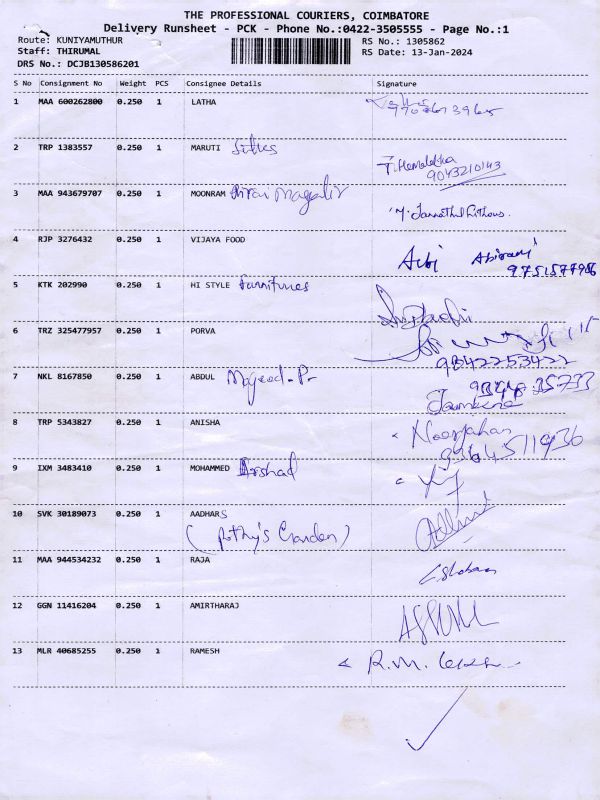 THE PROFESSIONAL COURIERS, COIMBATORE
Delivery Runsheet - PCK - Phone No.:0422-3505555 - Page No.:1
Route: KUNIYAMUTHUR RS No.: 1305862
Staff: THIRUMAL RS Date: 13-Jan-2024
DRS No.: DCJB130586201
S No Consignment No Weight PCS Consignee Details Signature
1 MAA 600262800 0.250 1 LATHA
2 TRP 1383557 0.250 1 MARUTI
T. Hemalatha
9043210143
3 MAA 943679707 0.250 1 MOONRAM
4 RJP 3276432 0.250 1 VIJAYA FOOD
Abirami
5 KTK 202990 0.250 1 HI STYLE furnitures
6 TRZ 325477957 0.250 1 PORVA
9842253422
7 NKL 8167850 0.250 1 ABDUL Majeed-P-
8 TRP 5343827 0.250 1 ANISHA Noorjahan
9 IXM 3483410 0.250 1 MOHAMMED Arshad
10 SVK 30189073 0.250 1 AADHARS
(Pothy's Garden)
11 MAA 944534232 0.250 1 RAJA
12 GGN 11416204 0.250 1 AMIRTHARAJ
13 MLR 40685255 0.250 1 RAMESH R.M.